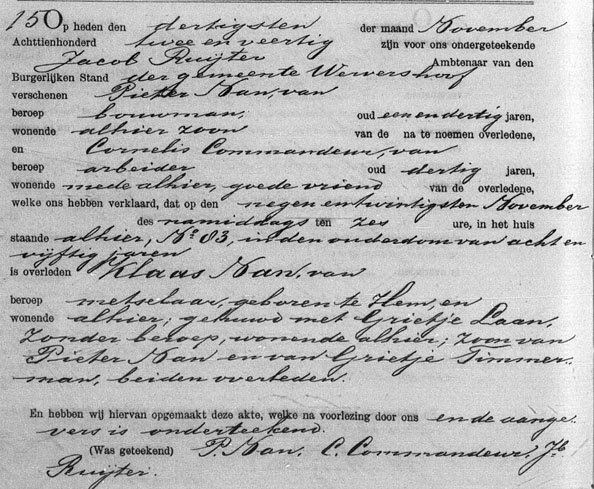 15 Op heden den dertigsten der maand November
Achttienhonderd twee en veertig zijn voor ons ondergeteekende
Jacob Ruijter Ambtenaar van den
Burgerlijken Stand der gemeente Wervershoof
verschenen Pieter Nan, van
beroep bouwman, oud een en dertig jaren,
wonende alhier zoon van de na te noemen overledene,
en Cornelis Commandeur, van
beroep arbeider oud dertig jaren,
wonende mede alhier, goede vriend van de overledene,
welke ons hebben verklaard, dat op den negen en twintigsten November
des namiddags ten zes ure, in het huis
staande alhier, No 83, in den ouderdom van acht en
vijftig jaren
is overleden Klaas Nan, van
beroep metselaar, geboren te Hem, en
wonende alhier; gehuwd met Grietje Laan,
zonder beroep, wonende alhier; zoon van
Pieter Nan en van Grietje Timmer-
man, beiden overleden.
En hebben wij hiervan opgemaakt deze akte, welke na voorlezing door ons en de aange-
vers is onderteekend.
(Was geteekend) P. Nan. C. Commandeur. Jb
Ruijter.